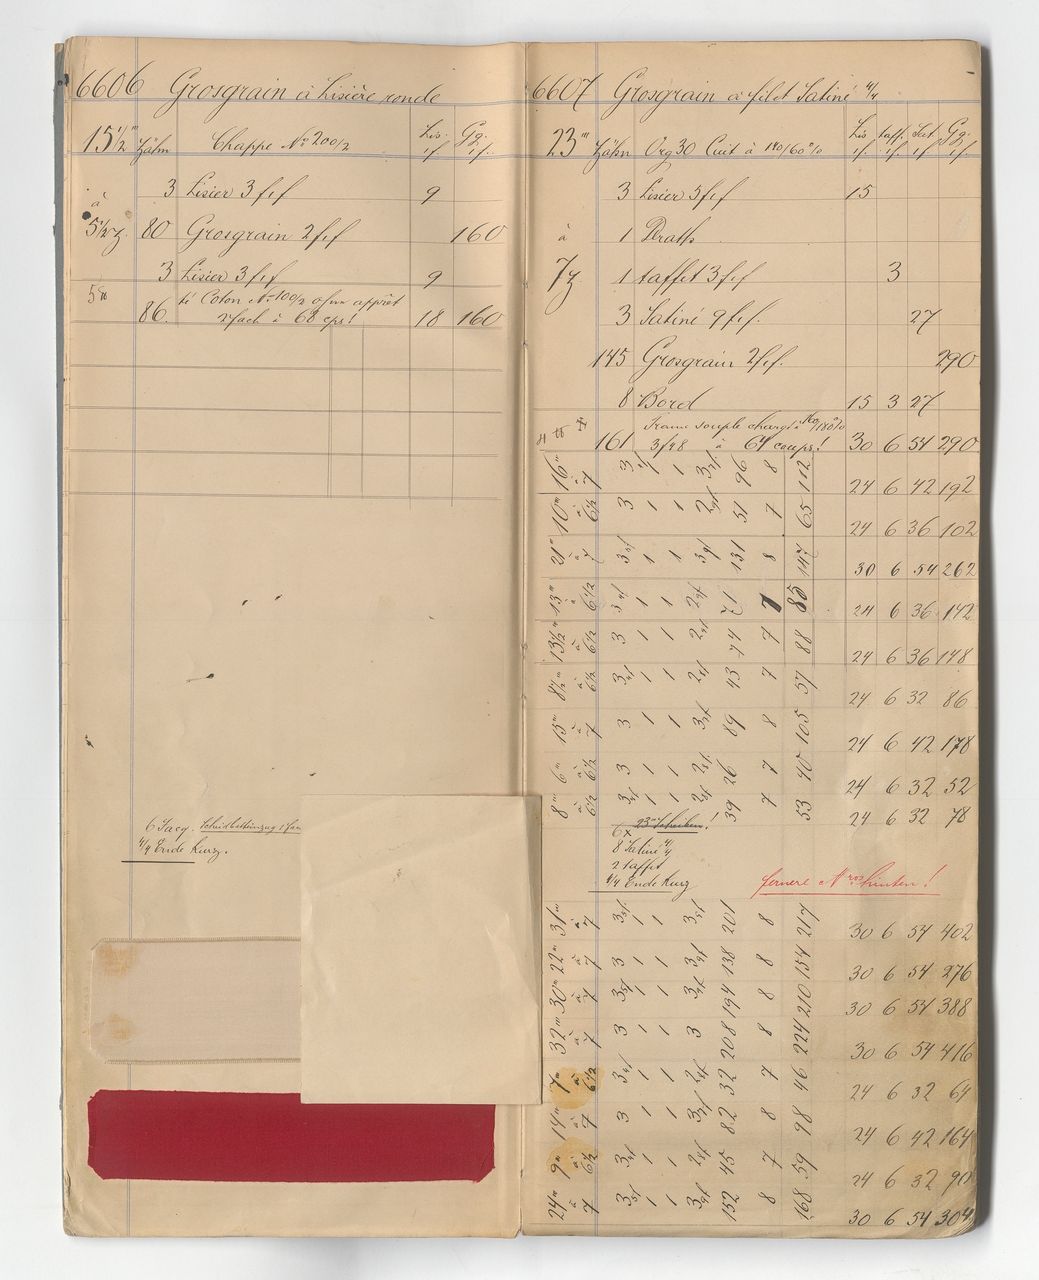 6606 Grosgrain à Lisière ronde
15 1/2''' Zähn Chappe No 200/2 Lis. Gg.
à
3 Lisier 3 f. 9
5 1/2 80 Grosgrain 2 f. 160
3 Lisier 3 f. 9
Coton No 100/2 apprêt
86. 2fach à 68 cps! 18 160
4/4 Ende Kurz.
6607 Grosgrain à filet Satiné 4/4
23''' Zähn Org 30 Cuit à Lis taff. Sat Gg.
3 Lisier 5 f. 15
à 1
7 1 taffet 3 f. 3
3 Satiné 9 f. 27
145 Grosgrain 2 f. 290
8 Bord 15 3 27
Trame souple chargé
161 3f48 à 64 coups! 30 6 54 290
16''' à 7 3 1 1 3 96 8 112 24 6 42 192
10''' à 6 1/2 3 1 1 2 51 7 65 24 6 36 102
21''' à 7 3 1 1 3 131 8 147 30 6 54 262
13''' à 6 1/2 3 1 1 2 71 7 85 24 6 36 142
13 1/2''' à 6 1/2 3 1 1 2 74 7 88 24 6 36 148
8 1/2''' à 6 1/2 3 1 1 2 43 7 57 24 6 32 86
15''' à 7 3 1 1 3 89 8 105 24 6 42 178
6''' à 6 1/2 3 1 1 2 26 7 40 24 6 32 52
8''' à 6 1/2 3 1 1 2 39 7 53 24 6 32 78
6 x
8 Satiné 4/4
2 taffet
4/4 Ende Kurz
fernere Nros hinten!
31''' à 7 3 1 1 3 201 8 217 30 6 54 402
22''' à 7 3 1 1 3 138 8 154 30 6 54 276
30''' à 7 3 1 1 3 194 8 210 30 6 54 388
32''' à 7 3 1 1 3 208 8 224 30 6 54 416
7''' à 6 1/2 3 1 1 2 32 7 46 24 6 32 64
14''' à 7 3 1 1 3 82 8 98 24 6 42 164
9''' à 6 1/2 3 1 1 2 45 7 59 24 6 32 90
24''' à 7 3 1 1 3 152 8 168 30 6 54 304